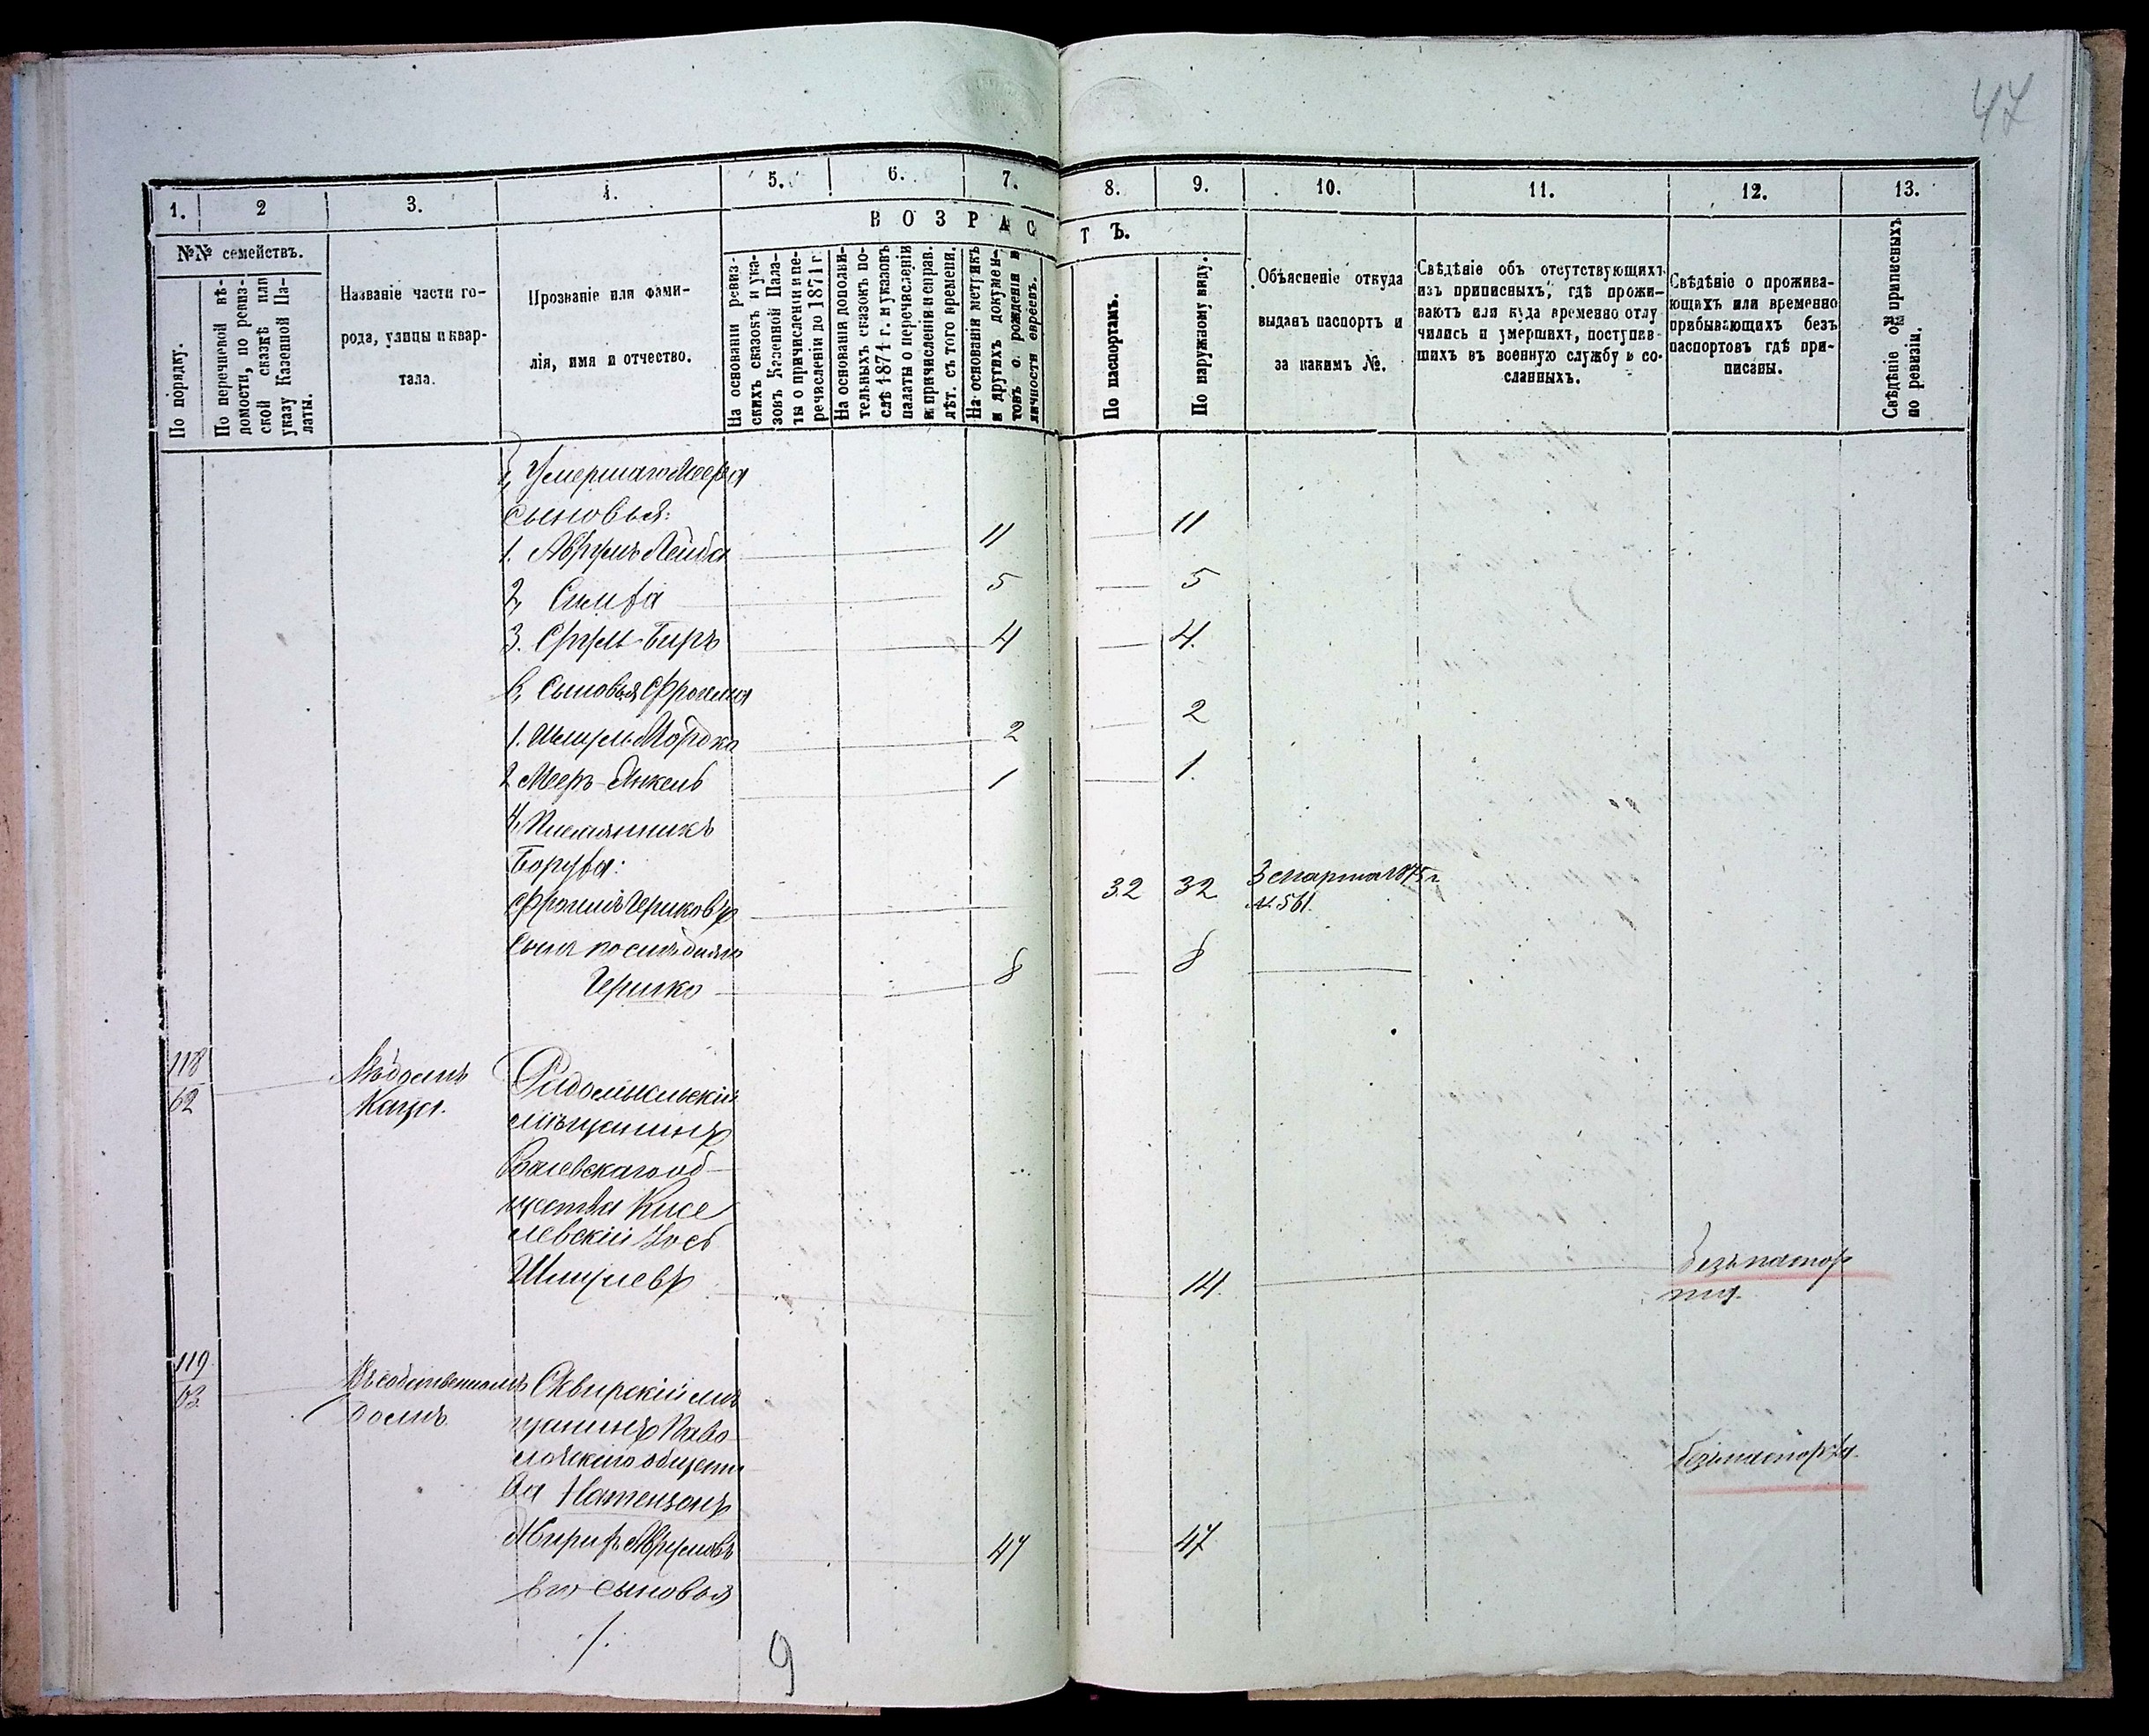 47
1. 2 3. 4. 5. 6. 7. 8. 9. 10. 11. 12. 13.
В О З Р А С Т Ъ.
№№ семействъ.
По порядку.
По перечневой вѣ-
домости, по ревиз-
ской сказкѣ или
указу Казенной Па-
латы.
Названіе части го-
рода, улицы и квар-
тала.
Прозваніе или фами-
лія, имя и отчество.
На основаніи ревиз-
скихъ сказокъ и ука-
зовъ Казенной Пала-
ты о причисленіи и пе-
речисленіи до 1871 г.
На основаніи дополни-
тельныхъ сказокъ по-
слѣ 1874 г. и указовъ
палаты о перечисленіи
и причисленіи и справ.
лѣт. съ того времени.
На основаніи метрикъ
и другихъ докумен-
товъ о рожденіи и
личности евреевъ.
По паспортамъ.
По наружному виду.
Объясненіе откуда
выданъ паспортъ и
за какимъ №.
Свѣдѣніе объ отсутствующихъ
изъ приписныхъ, гдѣ прожи-
ваютъ или куда временно отлу
чились и умершихъ, поступив-
шихъ въ военную службу и со-
сланныхъ.
Свѣдѣніе о прожива-
ющихъ или временно
прибывающихъ безъ
паспортовъ гдѣ при-
писаны.
Свѣдѣніе о приписныхъ
по ревизіи.
Умершаго Меера
сыновья:
1. Аврумъ Лейба 11 11
2, Симха 5 5
3. Сруль-Беръ 4 4.
Сыновья Фроима
1. Шмуль Мордко 2 2
2 Мееръ-Янкель 1 1.
4, Племянникъ
Боруха:
Фроимъ Герковъ 32 32 3 марта 1875 г.
№ 561.
Сынъ послѣдняго
Гершко 8 8
118
62
Въ домѣ
Каца.
Радомысльскій
мѣщанинъ
общества Кисе
левскій Іось
Шмулевъ 14. безъ паспор
та.
119.
63.
Въ собственномъ
домѣ.
Сквирскій мѣ
щанинъ Паво
лочскаго общест
ва Натензонъ безъ паспорта.
Аврумовъ 47 47
Его сыновья
./.
9